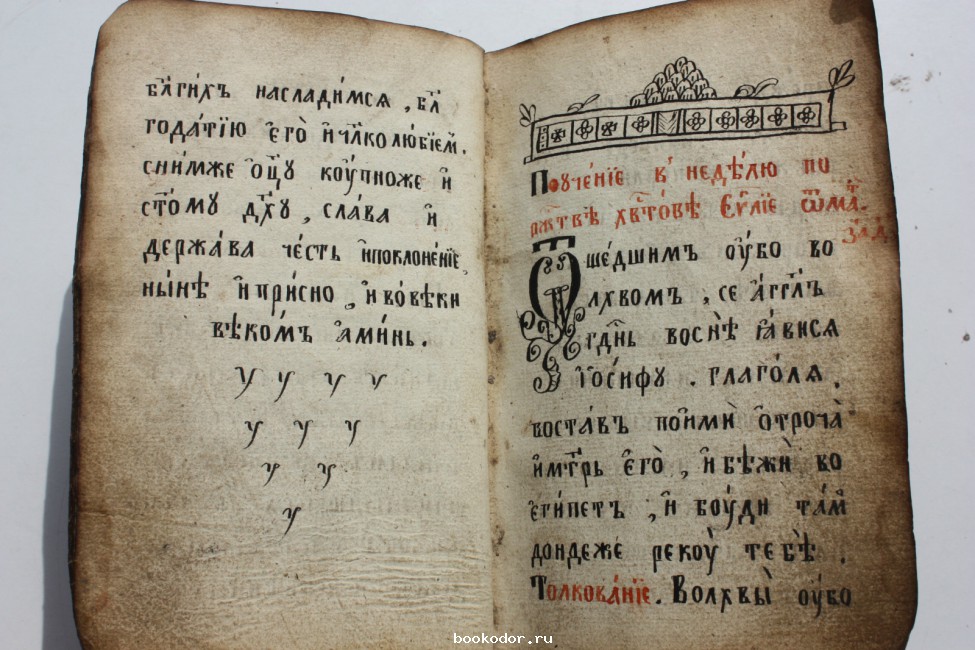 бл҃ги́хъ насладимся , бл҃
года́тїю є҆гѡ̀ и҆ чл҃колю́бїем̾.
сни́мже ѻ҆ц҃ꙋ коу́пноже и҆
ст҃о́мꙋ дх҃ꙋ , сла́ва и҆
держа́ва че́сть и҆поклоне́нїе,
ны́нѣ и҆при́сно , и҆во́вѣки
вѣко́мъ а҆ми́нь .
Поуче́нїе в̾ недѣ́лю по
ржⷭ҇твѣ̀ хв҃ѣ то́вѣ Є҆ѵⷢ҇лїе ѿма́ⷴ.
за́ч
Ѿше́дшимъ оу҆́бо во
лхво́мъ , се а҆́гг҃лъ
гд҇нь воснѣ̀ ꙗ҆ви́ся
І҆о́сифꙋ . глаго́ля ,
воста́въ пои҆мѝ ѻ҆троча̀
и҆мт҃рь є҆гѡ̀ , и҆ бѣжѝ во
є҆ги́петъ , и҆ боу́ди та́мѡ
до́ндеже рекоу̀ тебѣ̀ .
Толкова́нїе . Волхвы̀ оу҆́бо
bookodor.ru